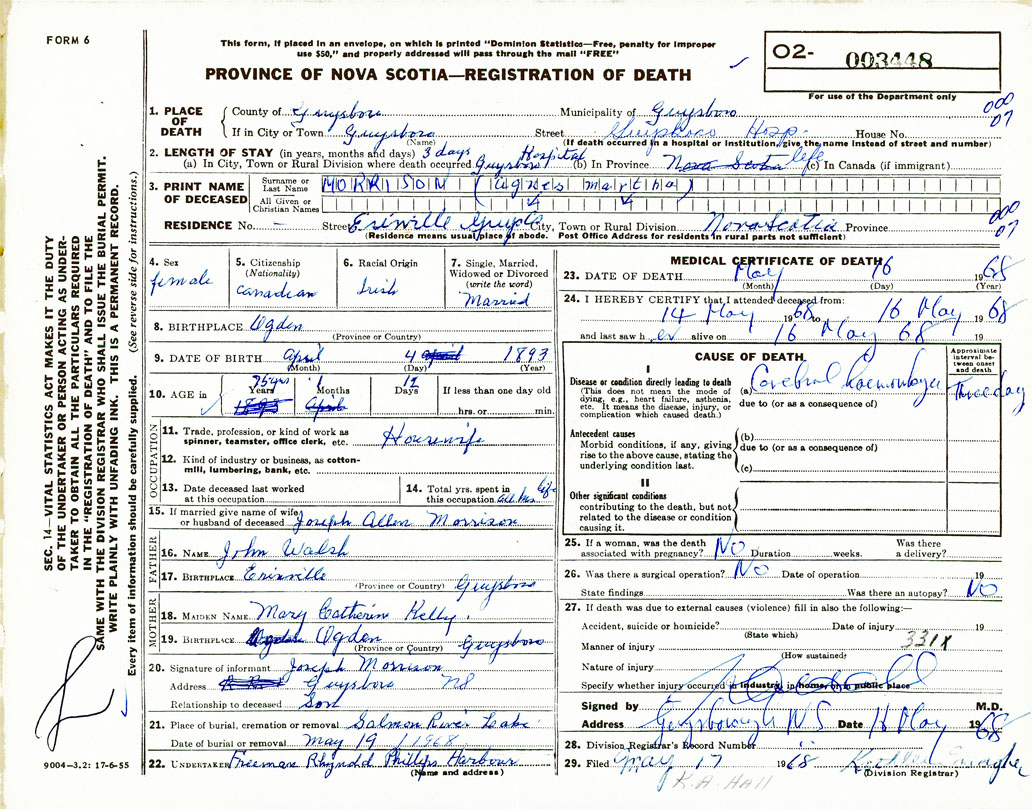 FORM 6
This form, if placed in an envelope, on which is printed "Dominion Statistics—Free, penalty for improper
use $50," and properly addressed will pass through the mail "FREE"
PROVINCE OF NOVA SCOTIA—REGISTRATION OF DEATH
O2- 003448
For use of the Department only
1. PLACE OF DEATH
County of Guysboro Municipality of Guysboro
If in City or Town Guysboro Street Guysboro Hosp. House No.
(Name) (If death occurred in a hospital or institution, give the name instead of street and number)
000
07
2. LENGTH OF STAY (in years, months and days) 3 days
(a) In City, Town or Rural Division where death occurred Guysboro Hospital (b) In Province Nova Scotia life (c) In Canada (if immigrant)
3. PRINT NAME OF DECEASED
Surname or Last Name MORRISON (Agnes Martha)
All Given or Christian Names
RESIDENCE No. - Street Erinville Guys Co City, Town or Rural Division Nova Scotia Province
(Residence means usual place of abode. Post Office Address for residents in rural parts not sufficient)
000
07
4. Sex
female
5. Citizenship
(Nationality)
Canadian
6. Racial Origin
Irish
7. Single, Married,
Widowed or Divorced
(write the word)
Married
8. BIRTHPLACE Ogden
(Province or Country)
9. DATE OF BIRTH April 4 April 1893
(Month) (Day) (Year)
10. AGE in
75 yrs 1 12
Years Months Days
1893 April
If less than one day old
hrs. or min.
OCCUPATION
11. Trade, profession, or kind of work as
spinner, teamster, office clerk, etc. Housewife
12. Kind of industry or business, as cotton-
mill, lumbering, bank, etc.
13. Date deceased last worked
at this occupation
14. Total yrs. spent in
this occupation all her life
15. If married give name of wife
or husband of deceased Joseph Allen Morrison
FATHER
16. NAME John Walsh
17. BIRTHPLACE Erinville Guysboro
(Province or Country)
MOTHER
18. MAIDEN NAME Mary Catherin Kelly.
19. BIRTHPLACE Ogden Guysboro
(Province or Country)
20. Signature of informant Joseph Morrison
Address Guysboro NS
Relationship to deceased Son
21. Place of burial, cremation or removal Salmon River Lake
Date of burial or removal May 19 / 1968
22. UNDERTAKER Freeman Rhynold Phillips Harbour
(Name and address)
MEDICAL CERTIFICATE OF DEATH
23. DATE OF DEATH May 16 1968
(Month) (Day) (Year)
24. I HEREBY CERTIFY that I attended deceased from:
14 May 1968 to 16 May 1968
and last saw h er alive on 16 May 68 19
CAUSE OF DEATH
Approximate interval between onset and death
I
Disease or condition directly leading to death
(This does not mean the mode of
dying, e.g., heart failure, asthenia,
etc. It means the disease, injury, or
complication which caused death.)
(a) Cerebral haemorrhage Three days
due to (or as a consequence of)
Antecedent causes
Morbid conditions, if any, giving
rise to the above cause, stating the
underlying condition last.
(b)
due to (or as a consequence of)
(c)
II
Other significant conditions
contributing to the death, but not
related to the disease or condition
causing it.
25. If a woman, was the death
associated with pregnancy? No Duration weeks. Was there
a delivery?
26. Was there a surgical operation? No Date of operation 19
State findings Was there an autopsy? NO
27. If death was due to external causes (violence) fill in also the following:—
Accident, suicide or homicide? Date of injury 19
(State which)
Manner of injury 331X
(How sustained)
Nature of injury
Specify whether injury occurred in industry, in home, or in public place
Signed by M.D.
Address Guysborough NS Date 1968
28. Division Registrar's Record Number
29. Filed May 17 1968
(Division Registrar)
K.A. Hall
SEC. 14—VITAL STATISTICS ACT MAKES IT THE DUTY
OF THE UNDERTAKER OR PERSON ACTING AS UNDER-
TAKER TO OBTAIN ALL THE PARTICULARS REQUIRED
IN THE "REGISTRATION OF DEATH" AND TO FILE THE
SAME WITH THE DIVISION REGISTRAR WHO SHALL ISSUE THE BURIAL PERMIT.
WRITE PLAINLY WITH UNFADING INK. THIS IS A PERMANENT RECORD.
Every item of information should be carefully supplied. (See reverse side for instructions.)
9004-3.2: 17-6-55